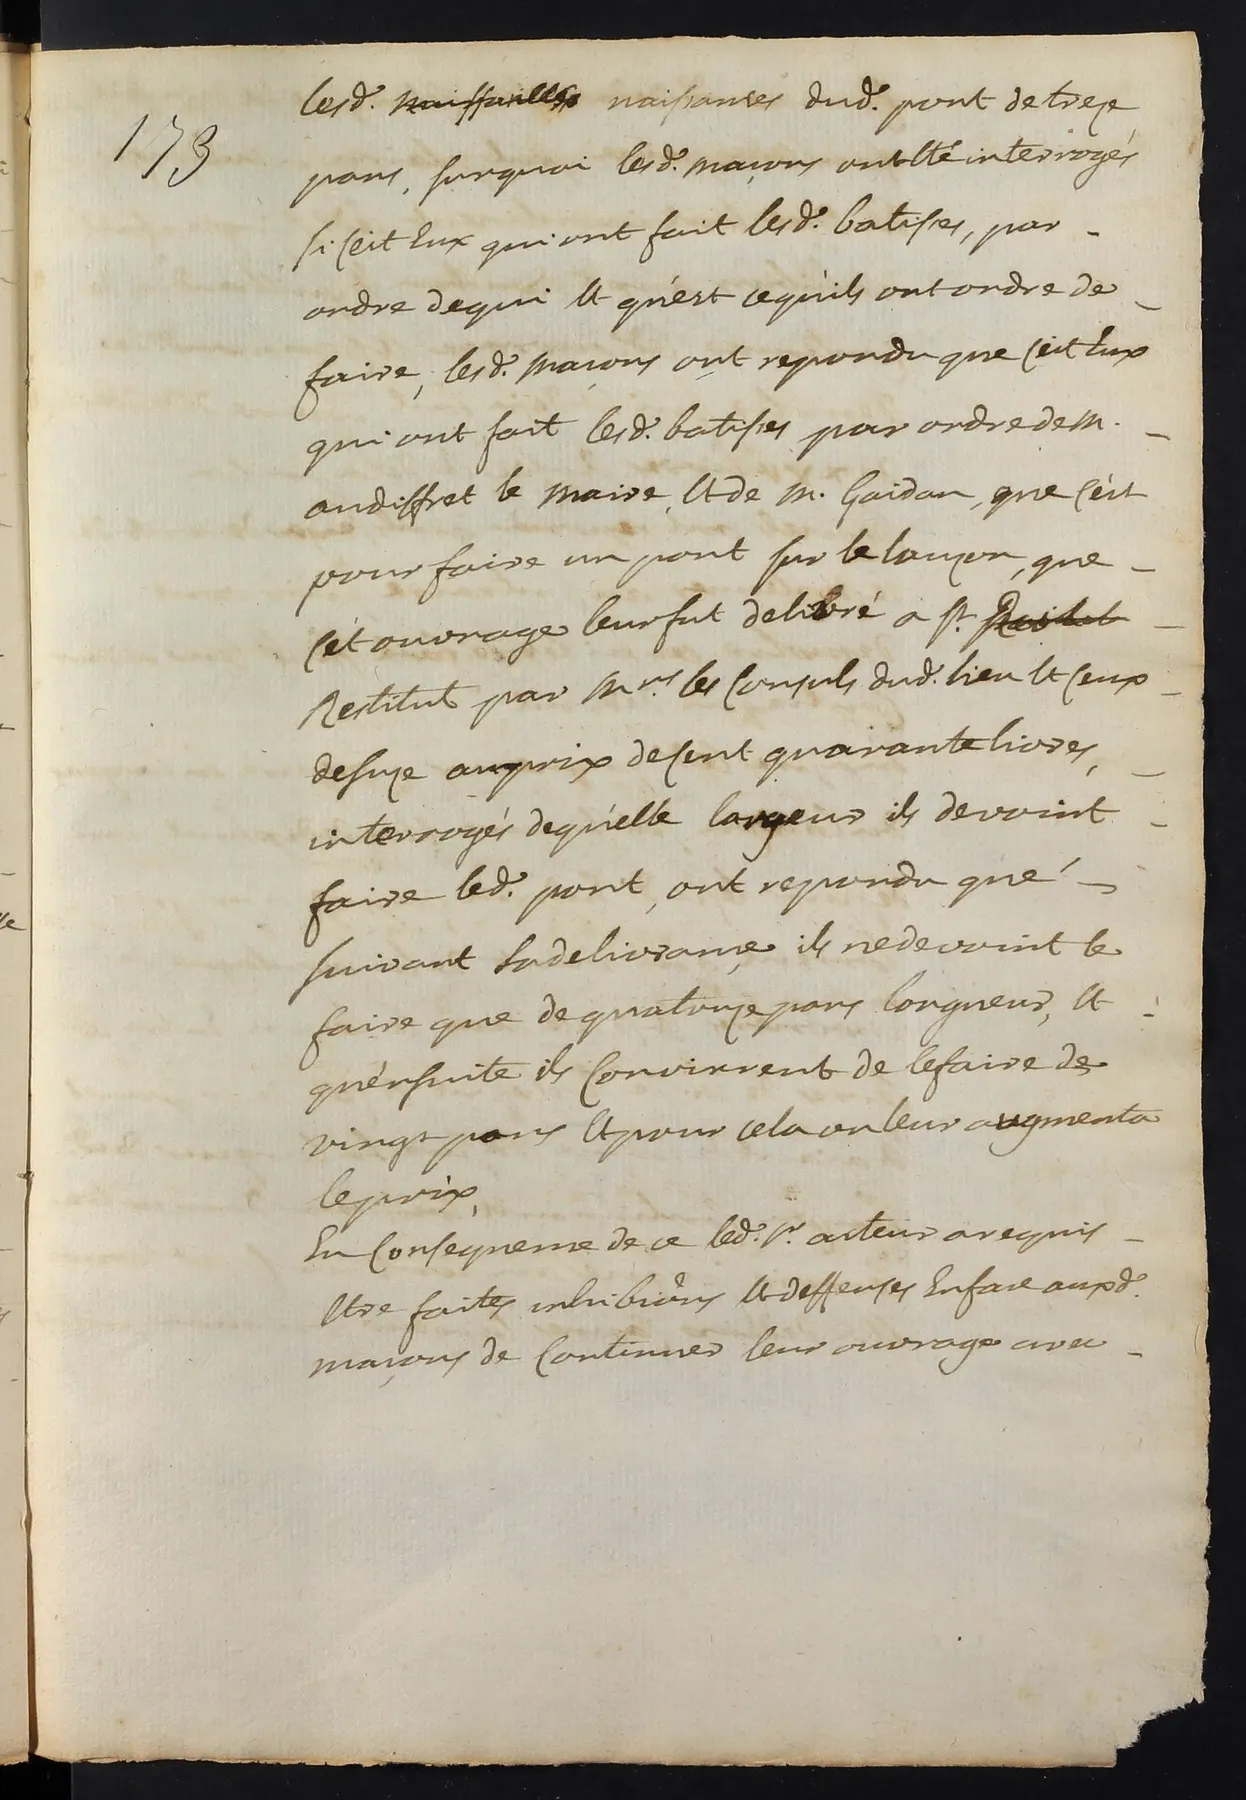 173
lesd. naissanses dud. pont de treze
pans, surquoi lesd. maçons ont été interrogés
si c'est eux qui ont fait lesd. batises, par -
ordre de qui et qu'est ce qu'ils ont ordre de -
faire, lesd. maçons ont repondu que c'est eux
qui ont fait lesd. batises par ordre de m. -
audiffret le maire, et de m. Gaidan, que c'est
pour faire un pont sur le lauzon, que -
cét ouvrage leur fut delibvré a st. -
Restitut par mrs. les Consuls dud. lieu et ceux -
de suze au prix de cent quarante livres, -
interrogés de qu'elle largeur ils devoint -
faire led. pont, ont repondu que -
suivant la delivrance ils ne devoint le
faire que de quatorze pans longueur, et -
qu'ensuite ils Convinrent de le faire de
vingt pans et pour cela on leur augmenta
le prix,
En Conséquence de ce led. sr. acteur a requis -
être faites inhibiõns et deffenses En face auxd.
maçons de Continuer leur ouvrage avec -